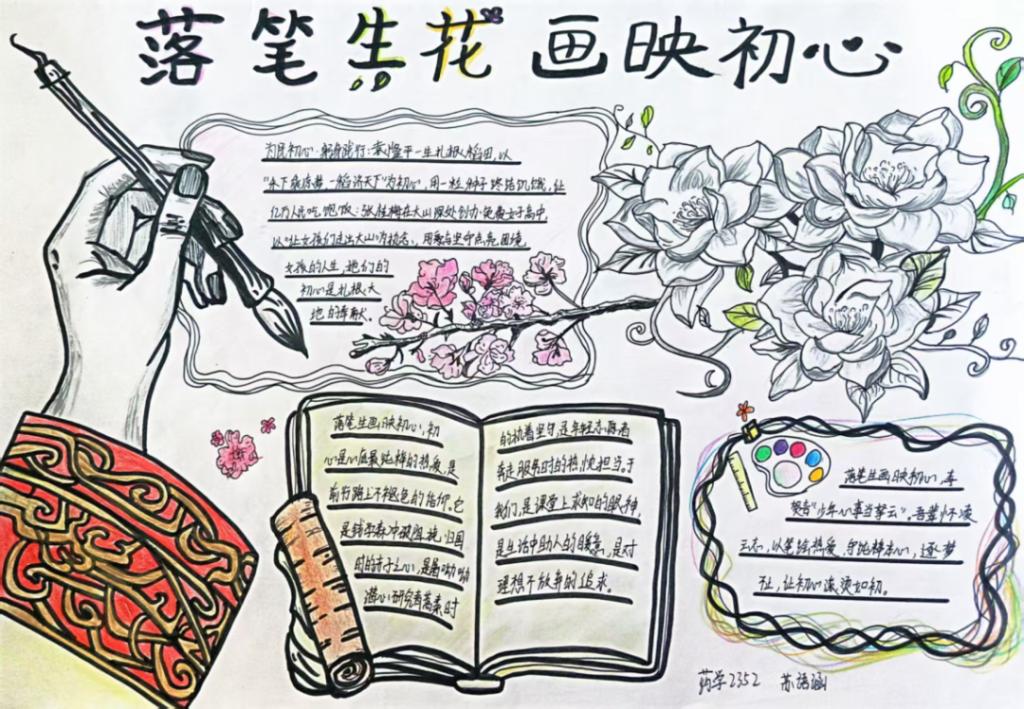 落笔生花 画映初心
为民初心·躬身践行：袁隆平一生扎根稻田，以
"禾下乘凉梦 一稻济天下"为初心，用一粒种子终结饥饿，让
亿万人民吃饱饭；张桂梅在大山深处创办免费女子高中，
以"让女孩们走出大山"为执念，用爱与坚守点亮困境
女孩的人生，她们的
初心是扎根大
地的奉献。
落笔生画映初心，初
心是心底最纯粹的热爱，是
前行路上不褪色的信仰。它
是钱学森冲破阻挠，归国
时的赤子之心，是屠呦呦
潜心研究青蒿素时
的执着坚守，是年轻志愿者
奔走服务时的热忱担当。于
我们，是课堂上求知的眼神，
是生活中助人的暖意，是对
理想不放弃的追求。
落笔生画映初心，李
贺言"少年心事当拏云"。吾辈怀凌
云志，以笔绘热爱，守纯粹本心，逐梦
不止，让初心滚烫如初。
药学2352 苏语涵